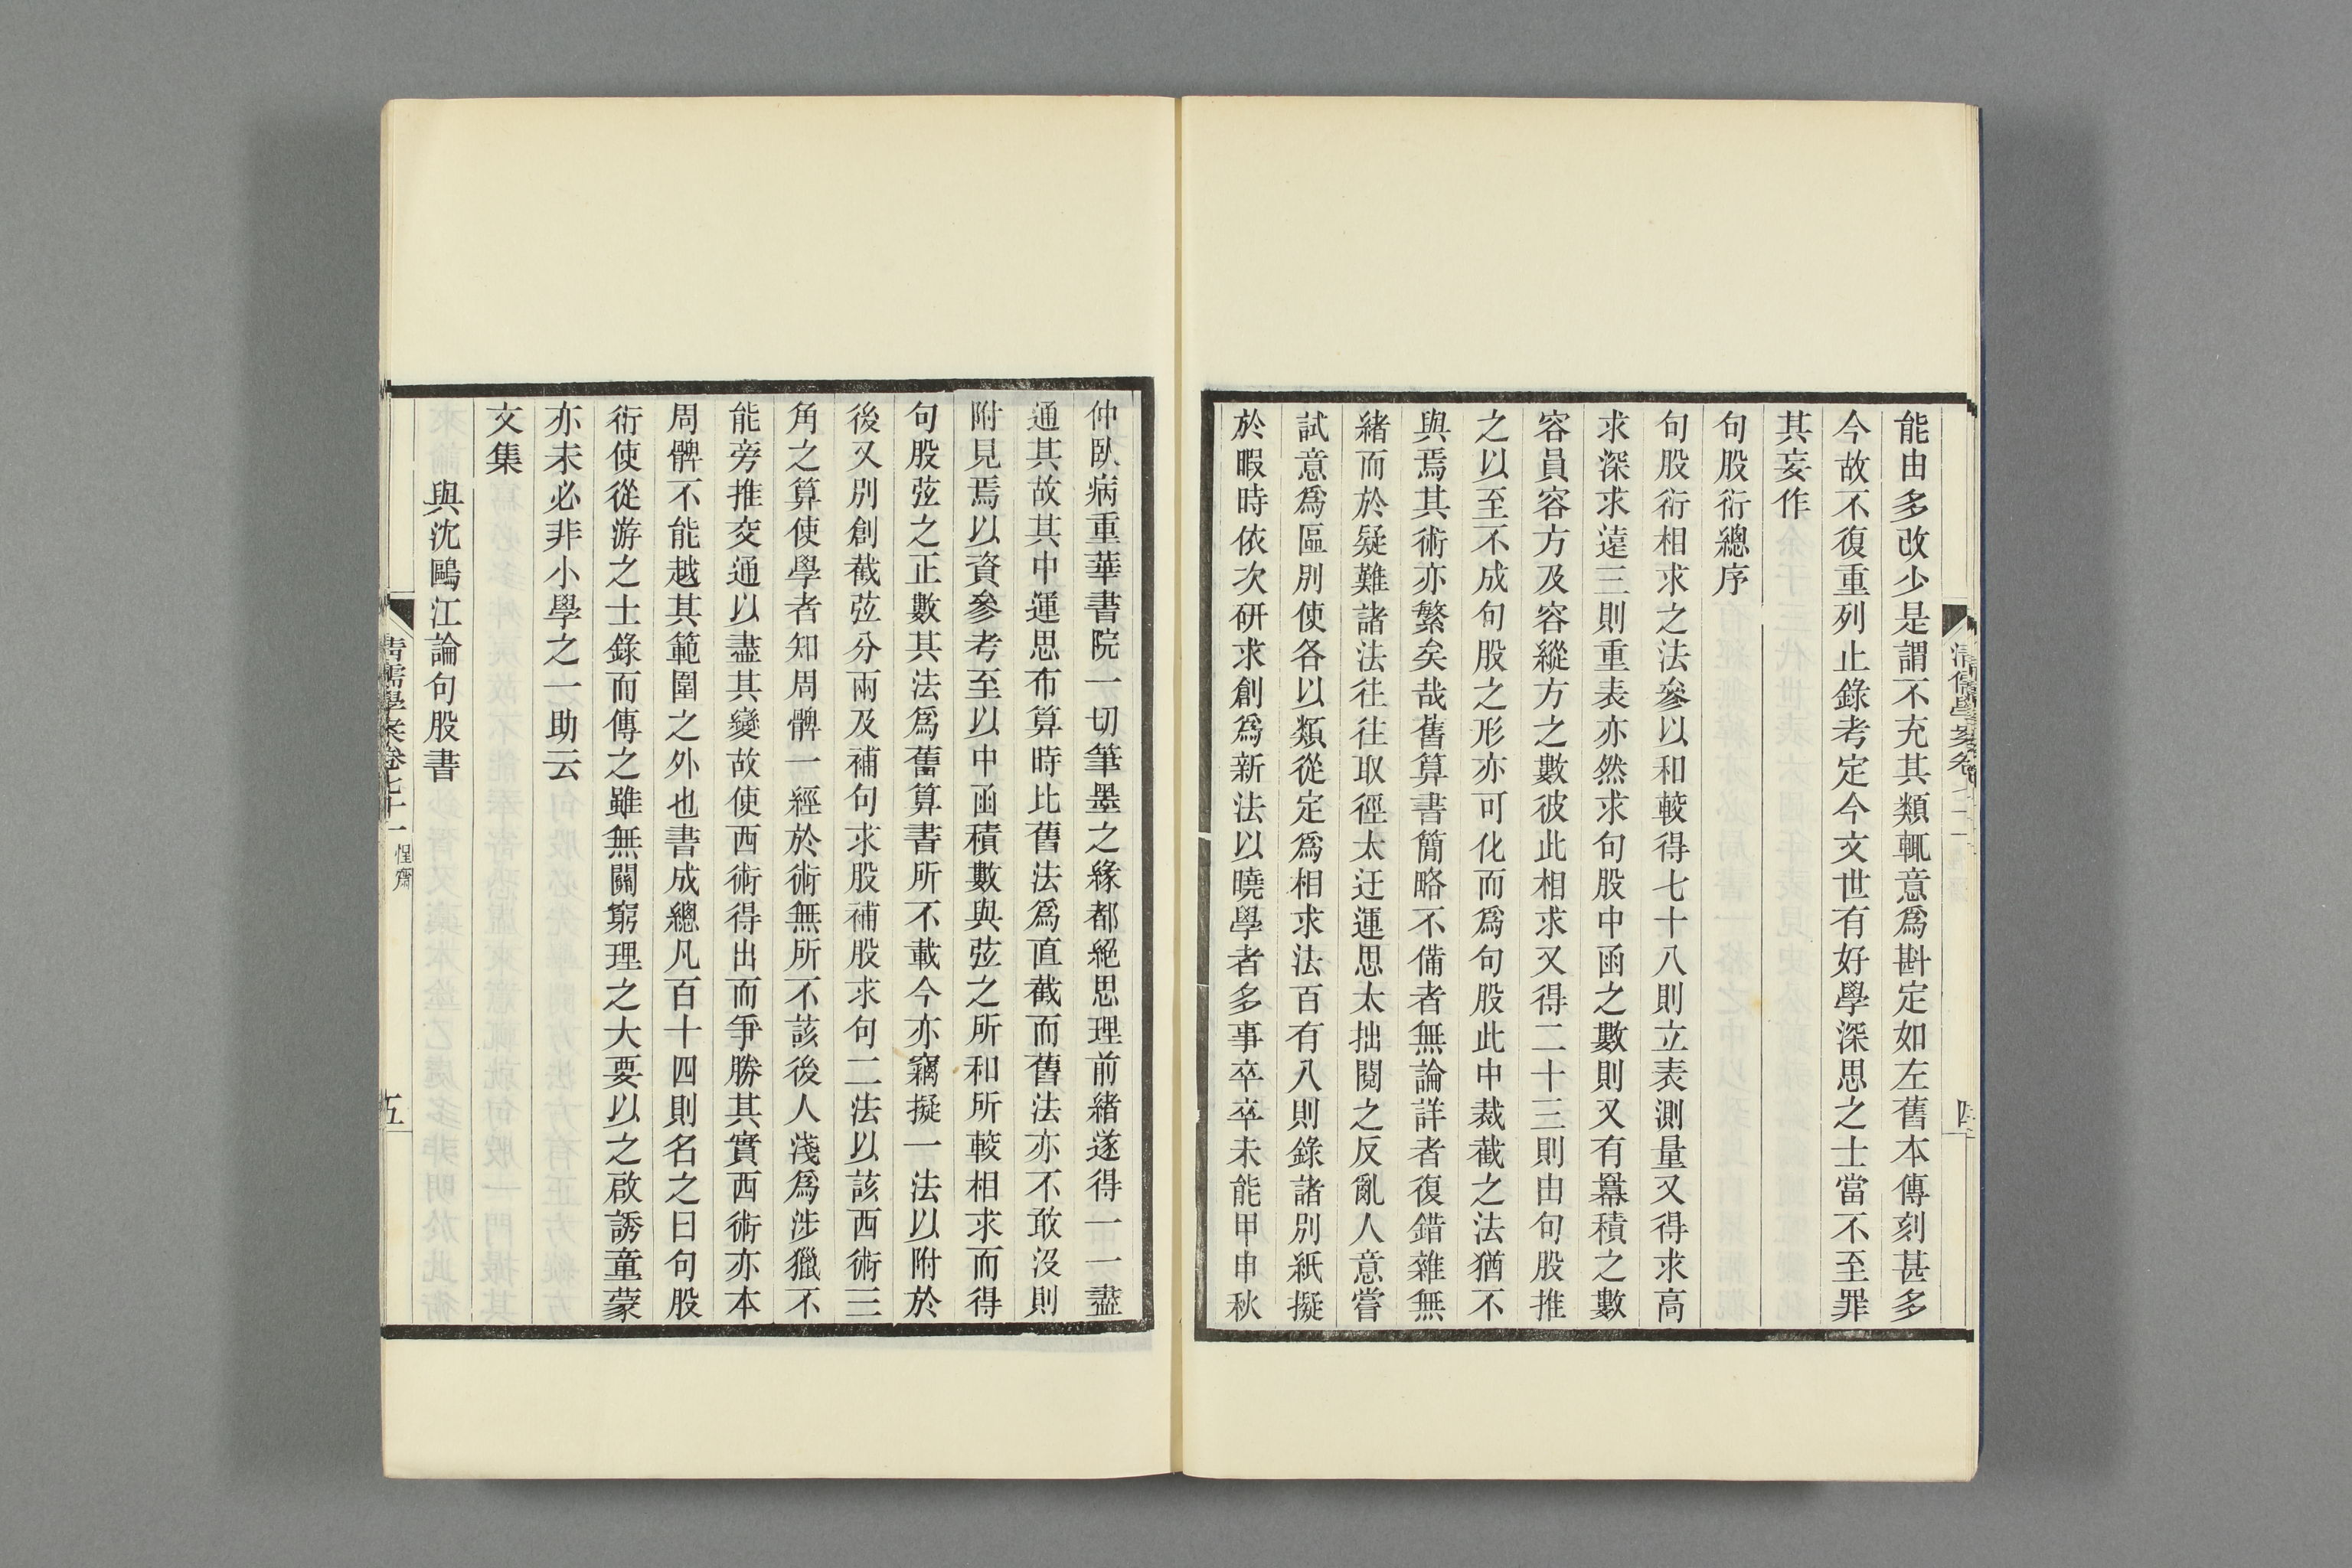 能由多改少是謂不充其類輒意爲斟定如左舊本傳刻甚多
今故不復重列止錄考定今文世有好學深思之士當不至罪
其妄作
句股衍總序
句股衍相求之法參以和較得七十八則立表測量又得求高
求深求遠三則重表亦然求句股中函之數則又有冪積之數
容員容方及容縱方之數彼此相求又得二十三則由句股推
之以至不成句股之形亦可化而爲句股此中裁截之法猶不
與焉其術亦繁矣哉舊算書簡略不備者無論詳者復錯雜無
緒而於疑難諸法往往取徑太迂運思太拙閱之反亂人意嘗
試意爲區別使各以類從定爲相求法百有八則錄諸別紙擬
於暇時依次研求創爲新法以曉學者多事卒卒未能甲申秋
仲臥病重華書院一切筆墨之緣都絕思理前緒遂得一一盡
通其故其中運思布算時比舊法爲直截而舊法亦不敢沒則
附見焉以資參考至以中函積數與弦之所和所較相求而得
句股弦之正數其法爲舊算書所不載今亦竊擬一法以附於
後又別創截弦分兩及補句求股補股求句二法以該西術三
角之算使學者知周髀一經於術無所不該後人淺爲涉獵不
能旁推交通以盡其變故使西術得出而爭勝其實西術亦本
周髀不能越其範圍之外也書成總凡百十四則名之曰句股
衍使從游之士錄而傳之雖無關窮理之大要以之啟誘童蒙
亦未必非小學之一助云
文集
與沈鷗江論句股書
清儒學案卷七十一 惺齋 五